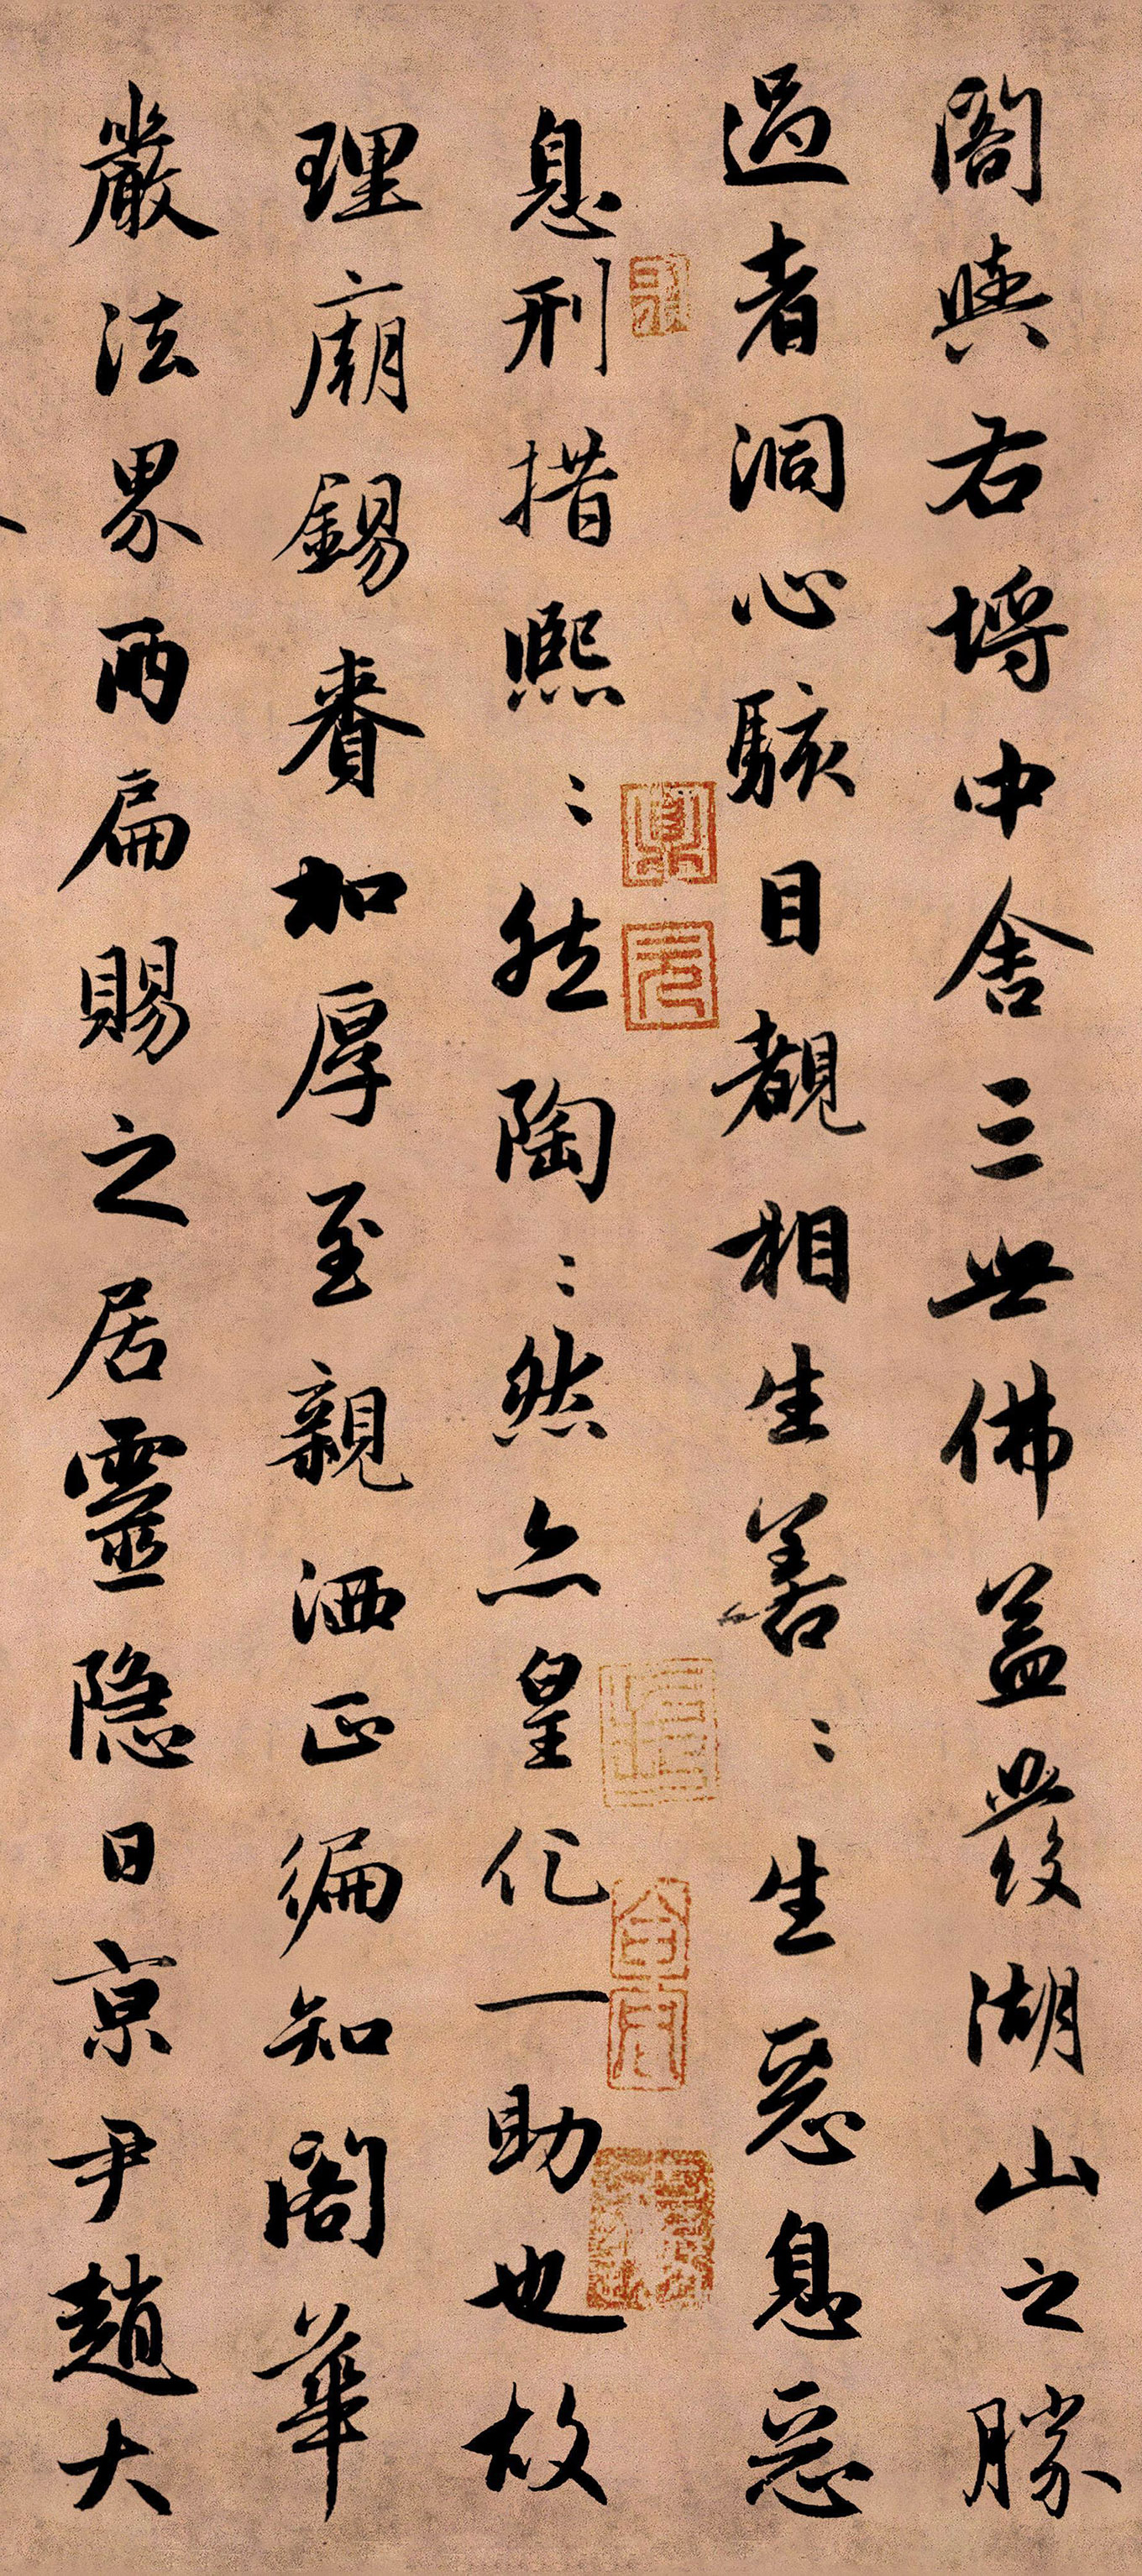 閣與右埒中舍三世佛蓋發湖山之勝
過者洞心駭目覩相生善〻生惡息惡
息刑措熙〻然陶〻然亦皇化一助也故
理廟錫賚加厚至親洒正徧知閣華
嚴法界兩扁賜之居靈隱日京尹趙大